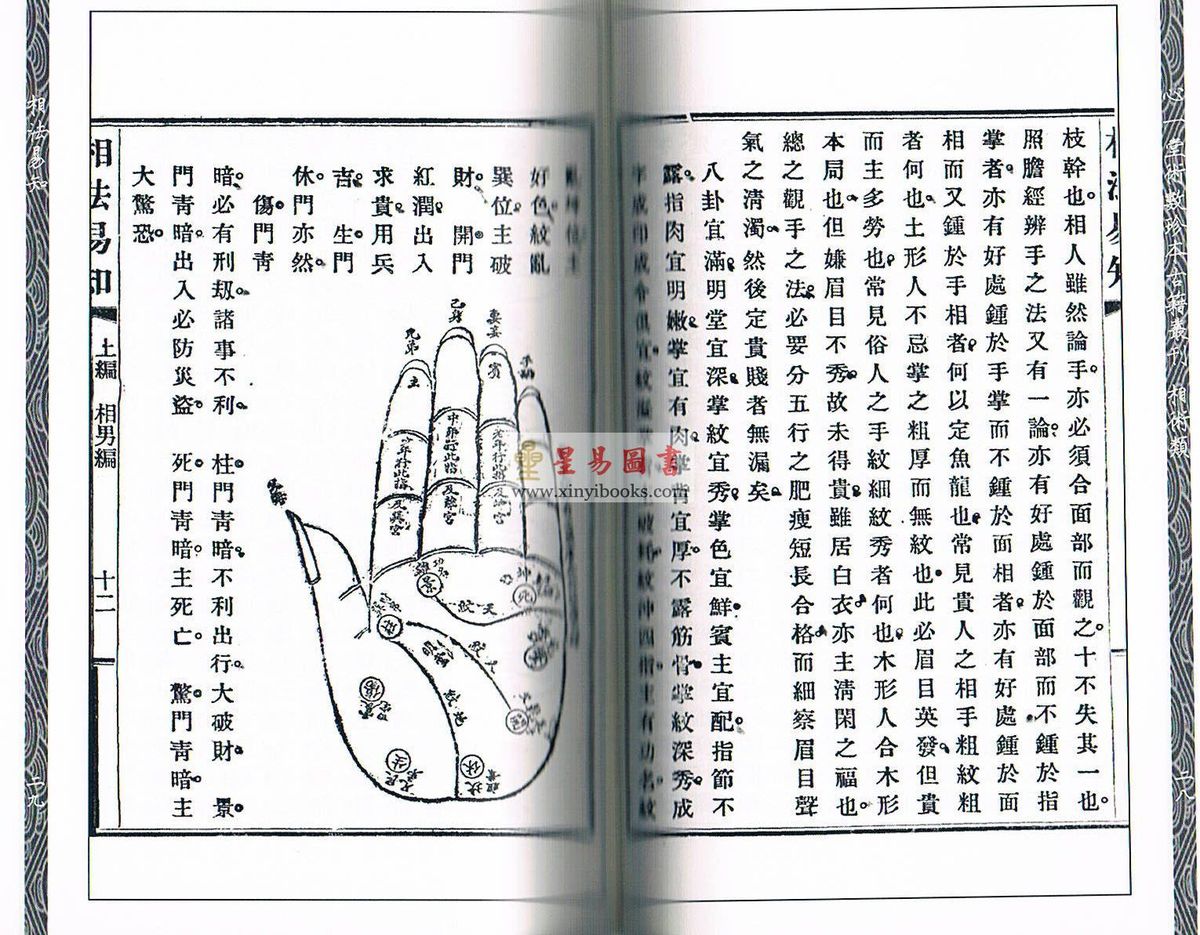 心一堂術數珍本古籍叢刊 相術類
枝幹也。相人雖然論手。亦必須合面部而觀之。十不失其一也。
照膽經辨手之法又有一論。亦有好處鍾於面部而不鍾於指
掌者。亦有好處鍾於手掌而不鍾於面相者。亦有好處鍾於面
相而又鍾於手相者。何以定魚龍也。常見貴人之相手粗紋粗
者何也。土形人不忌掌之粗厚而無紋也。此必眉目英發。但貴
而主多勞也。常見俗人之手紋細紋秀者何也。木形人合木形
本局也。但嫌眉目不秀。故未得貴。雖居白衣。亦主清閑之福也。
總之觀手之法。必要分五行之肥瘦短長合格。而細察眉目聲
氣之清濁。然後定貴賤者無漏矣。
八卦宜滿。明堂宜深。掌紋宜秀。掌色宜鮮。賓主宜配。指節不
露。指肉宜明嫩。掌宜有肉。掌背宜厚。不露筋骨。掌紋深秀。成
好色。紋亂
巽位。主破
財。 開門
紅潤。出入
求貴。用兵
吉。 生門
休門亦然。
傷門青
暗。必有刑刼。諸事不利。 杜門青暗。不利出行。大破財。 景
門青暗。出入必防災盜。 死門青暗。主死亡。 驚門青暗。主
大驚恐。
兄弟
己身
妻妾
主
賓
中年行此指
及離宮
老年行此指
及坤宮
及巽宮
景
死
天紋
人紋
地紋
傷
生
休
相法易知
上編 相男編
十二
相法易知
星易圖書
www.xinyibooks.com